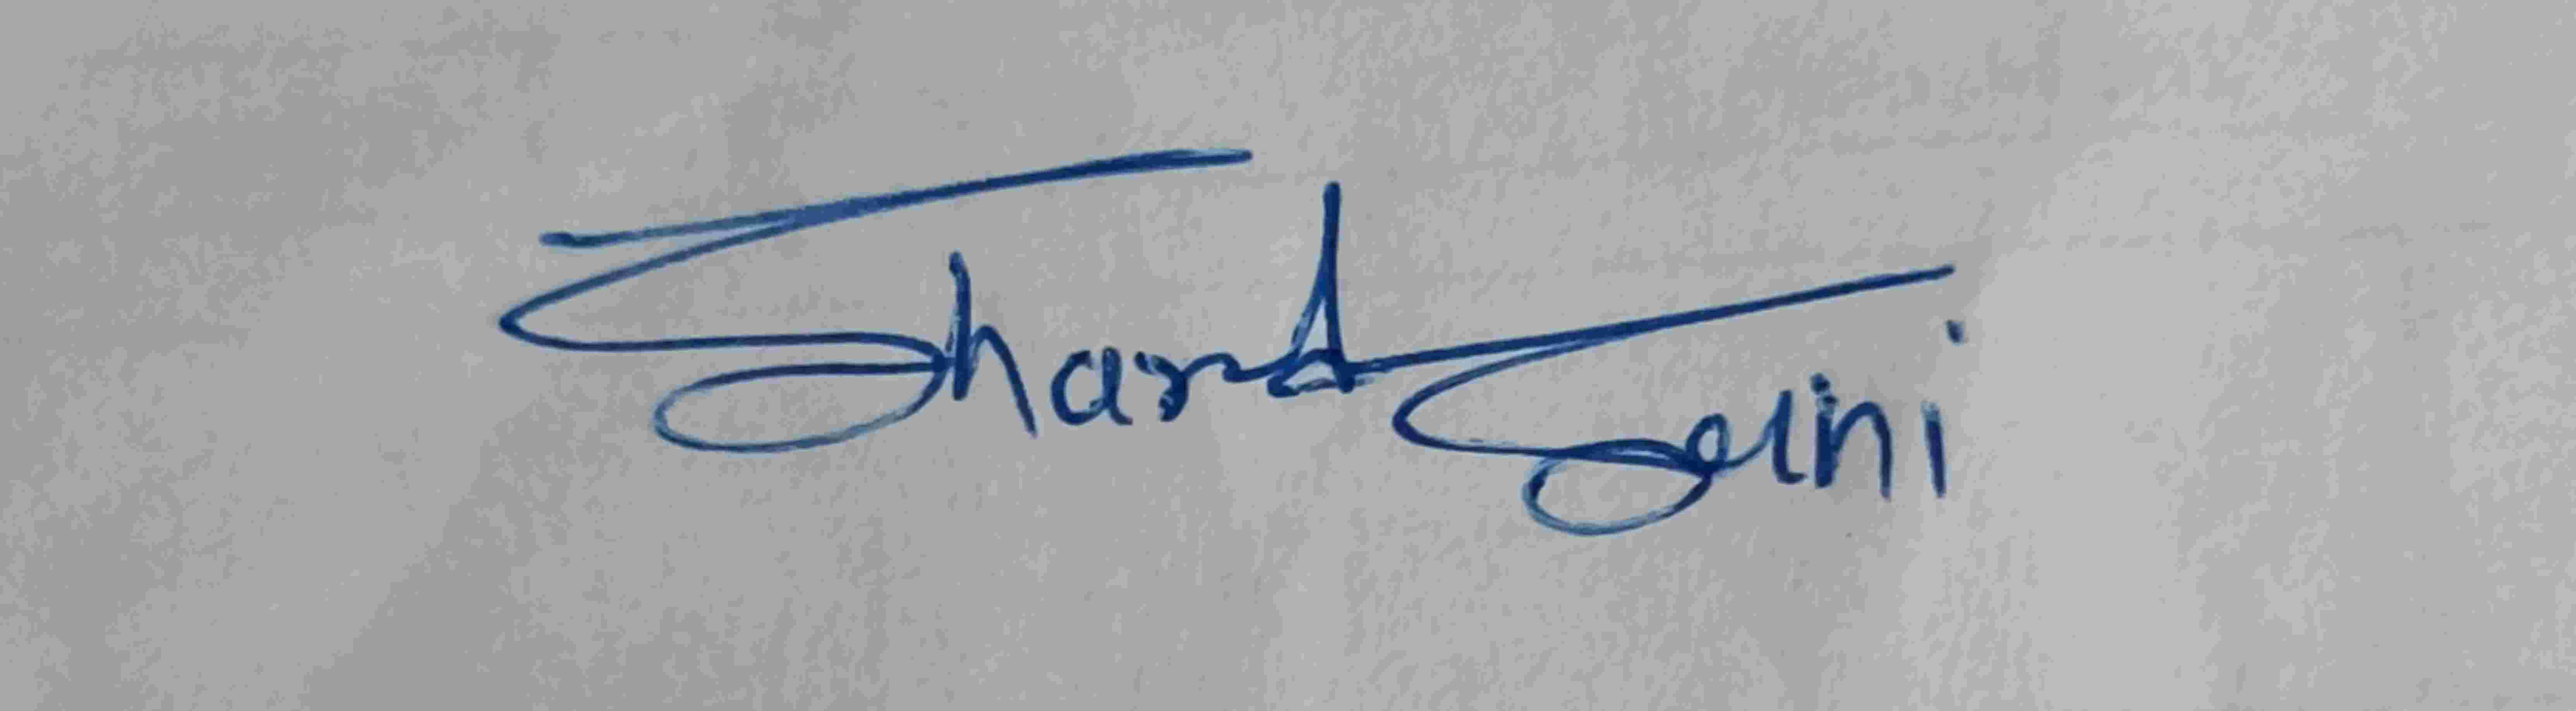 Sharad Saini